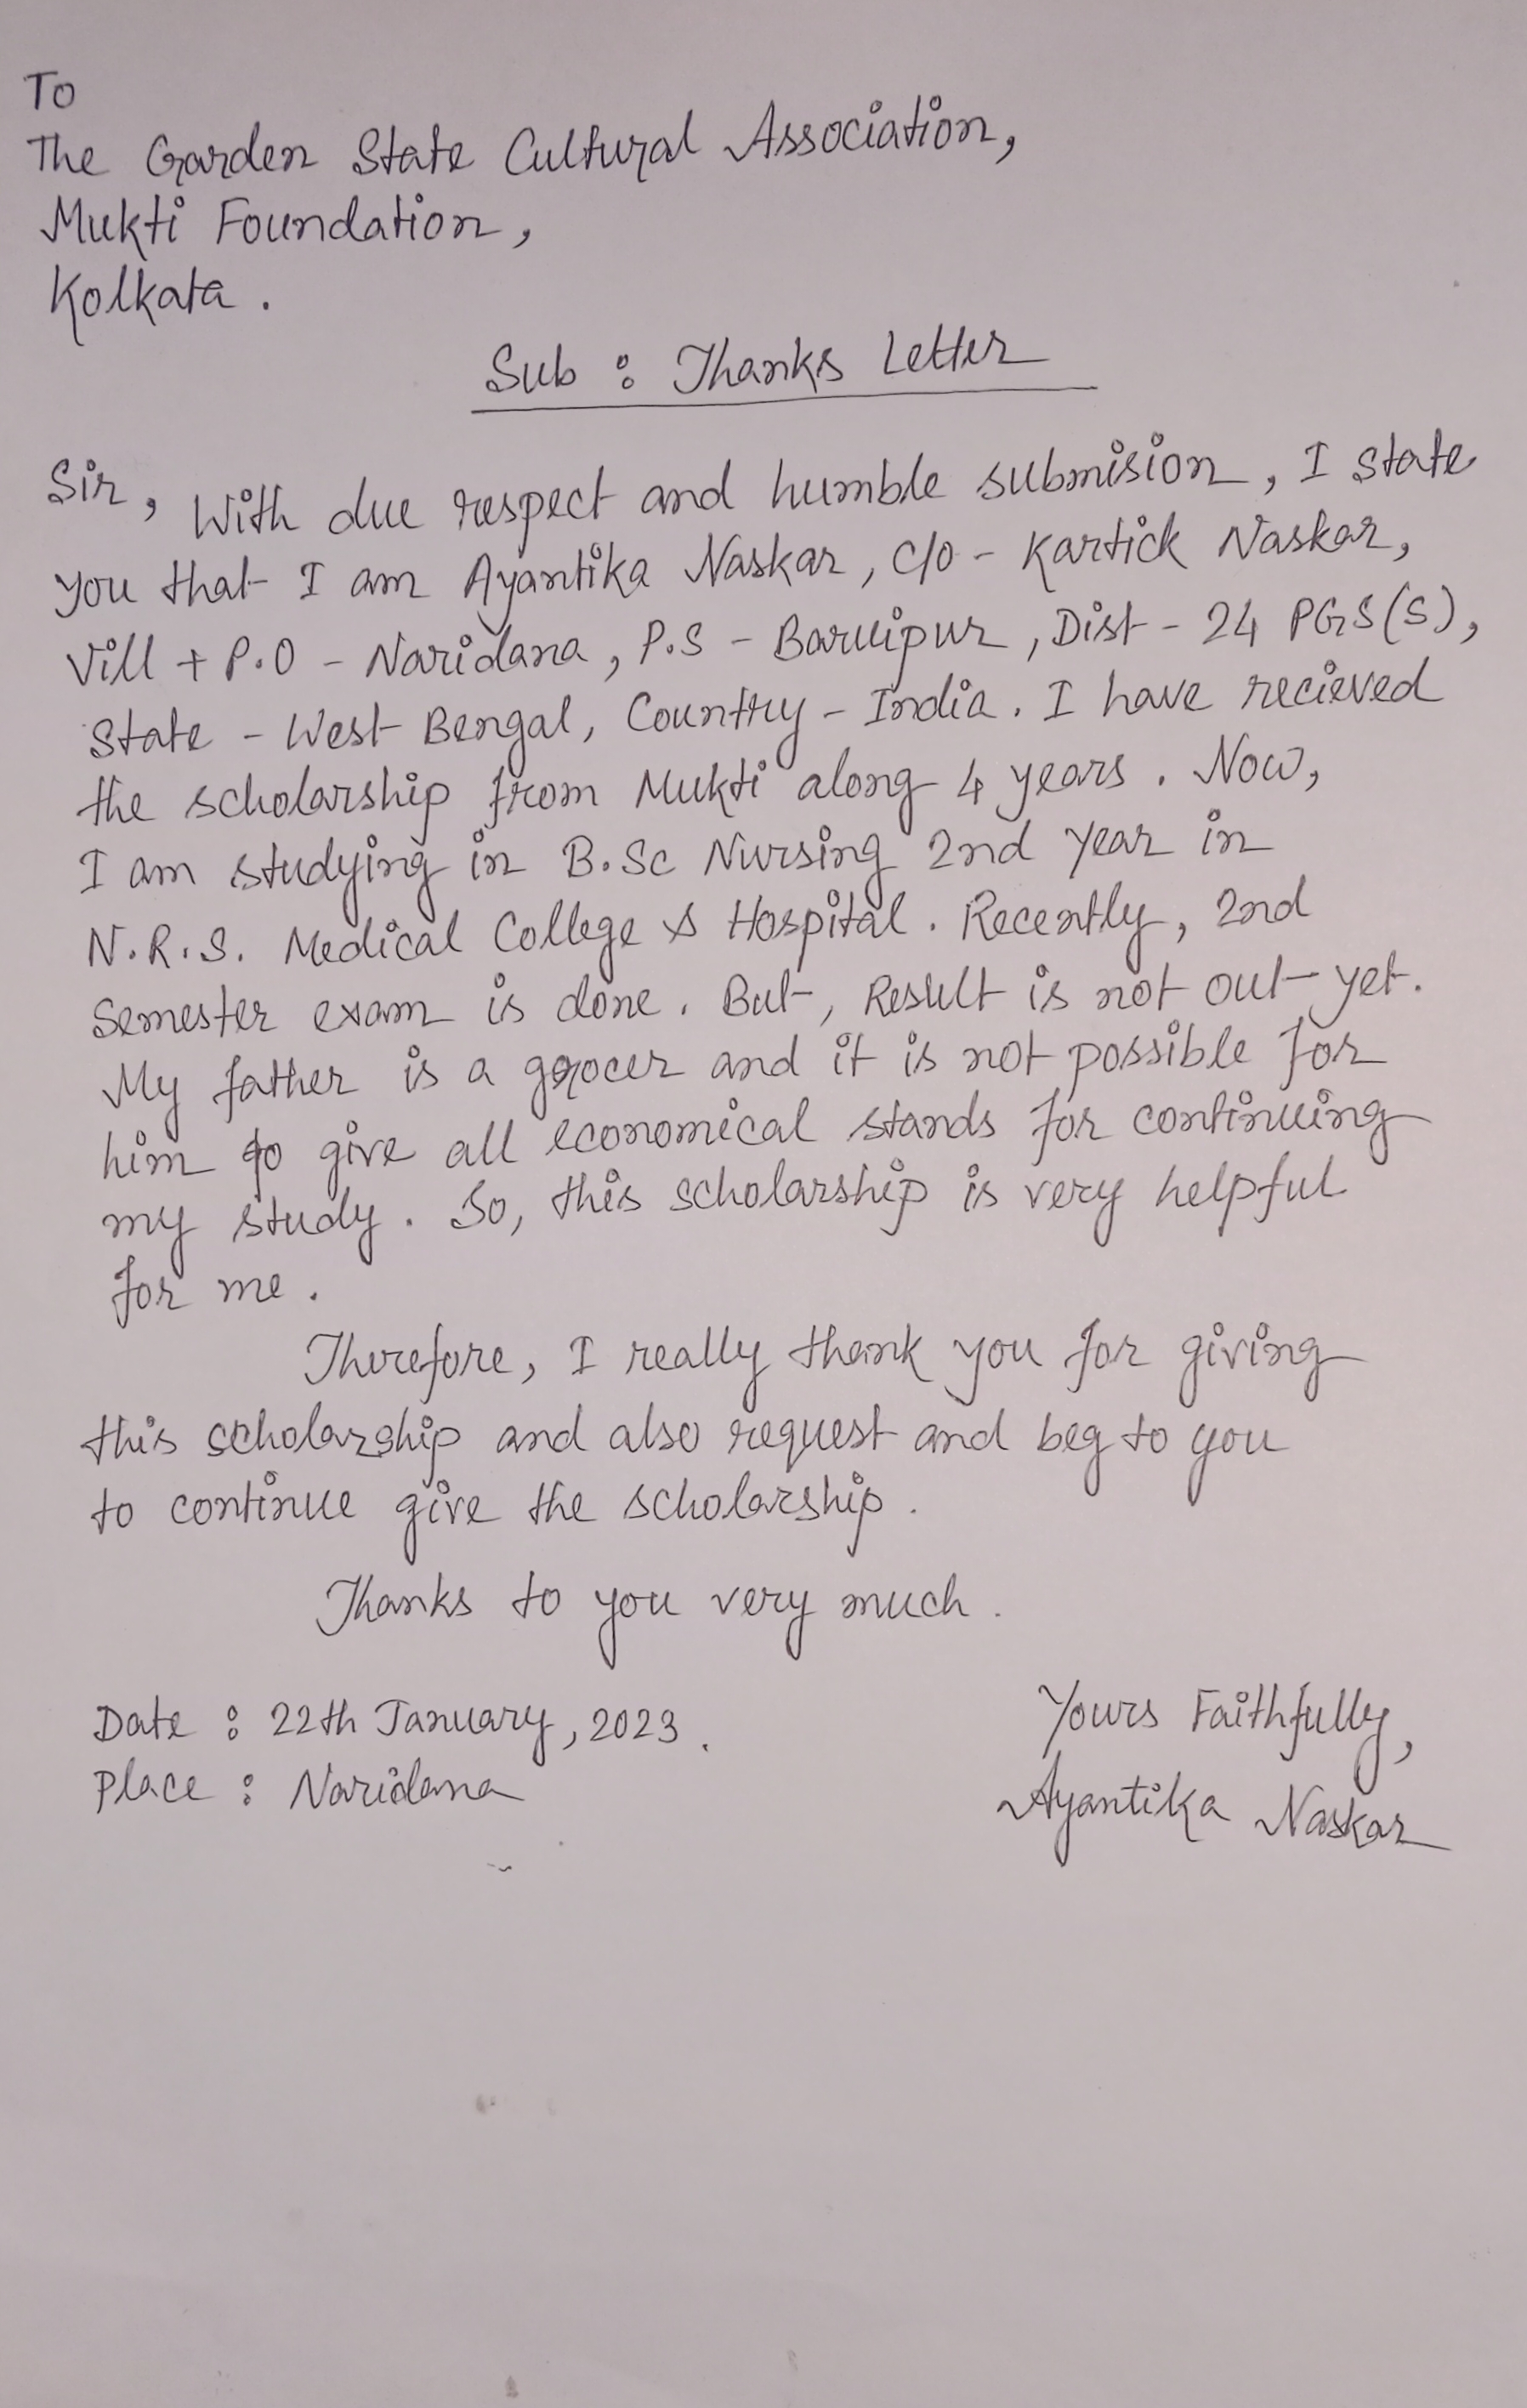 To
The Garden State Cultural Association,
Mukti Foundation,
Kolkata.
Sub : Thanks Letter
Sir, With due respect and humble submision, I state
you that I am Ayantika Naskar, C/o - Kartick Naskar,
Vill + P.O - Naridana, P.S - Baruipur, Dist - 24 PGS(S),
State - West Bengal, Country - India. I have recieved
the scholarship from Mukti along 4 years. Now,
I am studying in B.Sc Nursing 2nd year in
N.R.S. Medical College & Hospital. Recently, 2nd
Semester exam is done. But, Result is not out yet.
My father is a grocer and it is not possible for
him to give all economical stands for continuing
my study. So, this scholarship is very helpful
for me.
Therefore, I really thank you for giving
this scholarship and also request and beg to you
to continue give the scholarship.
Thanks to you very much.
Date : 22th January, 2023.
Place : Naridana
Yours Faithfully,
Ayantika Naskar